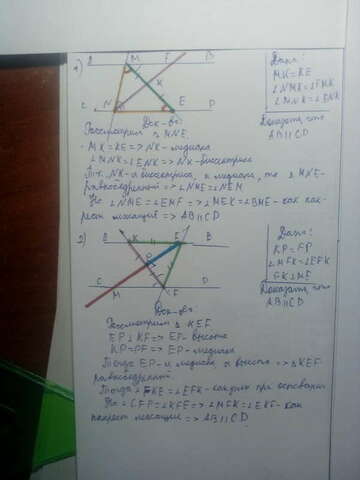 1)
A M F B
K
C N E D
Дано:
MK=KE
∠NMK=∠EMK
∠MNK=∠ENK
Доказать, что
AB||CD
Док-во:
Рассмотрим △MNE.
MK=KE => NK-медиана
∠MNK=∠ENK => NK-биссектриса
Т.к. NK-и биссектриса, и медиана, то △MNE-
равнобедренный => ∠NME=∠NEM.
Но ∠NME=∠EMF => ∠MEK=∠BME-как нак-
рест лежащие => AB||CD
2)
A K E B
P
C M F D
Дано:
KP=FP
∠MFK=∠EFK
EK⊥MF
Доказать, что
AB||CD
Док-во:
Рассмотрим △KEF.
EP⊥KF => EP-высота
KP=PF => EP-медиана
Тогда EP-и медиана, и высота => △KEF-
равнобедренный.
Тогда ∠FKE=∠EFK-как углы при основании
Но ∠CFP=∠KFE => ∠MFK=∠EKF-как
накрест лежащие => AB||CD